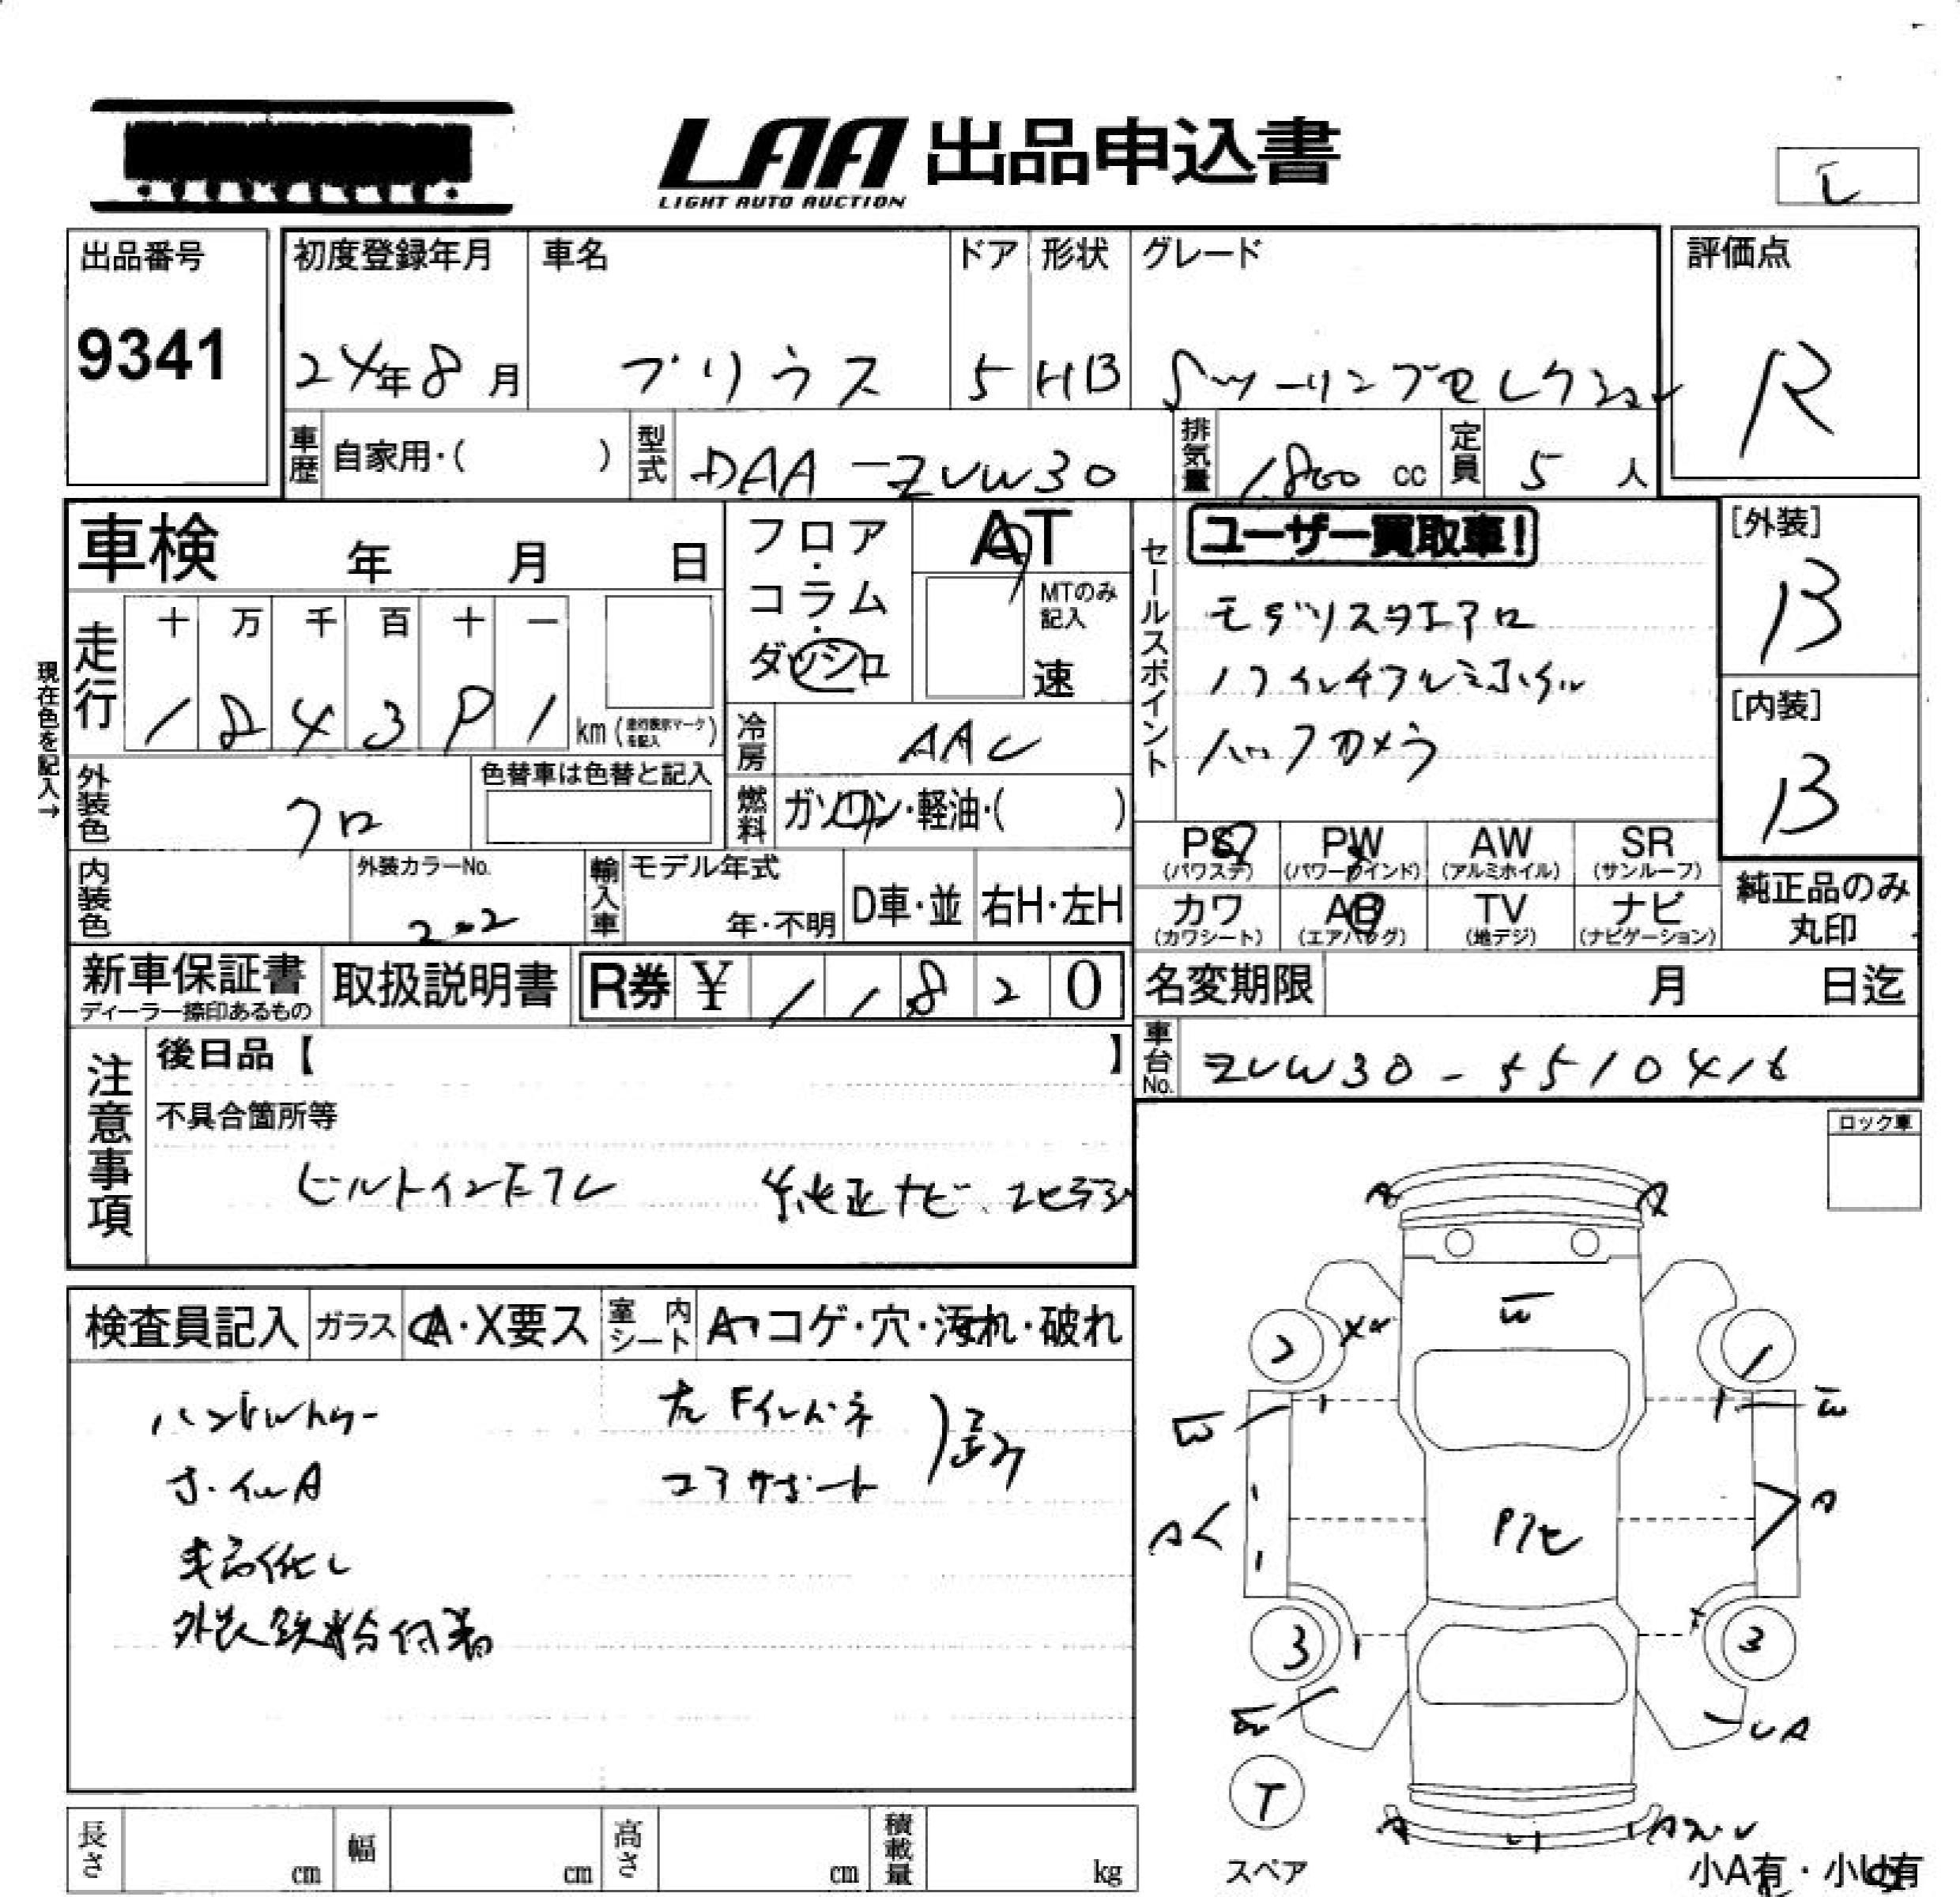 LAA 出品申込書
LIGHT AUTO AUCTION
出品番号
9341
初度登録年月
24年8月
車名
プリウス
ドア
5
形状
HB
グレード
Sツーリングセレクション
評価点
R
車歴 自家用・( )
型式 DAA-ZVW30
排気量 1800 cc
定員 5 人
車検 年 月 日
フロア・コラム・ダッシュ
AT
MTのみ記入
速
走行
十 万 千 百 十 一
km(走行表示マークを記入)
現在色を記入→
冷房 AAC
燃料 ガソリン・軽油・( )
外装色 クロ
色替車は色替と記入
内装色
外装カラーNo.
202
輸入車
モデル年式
年・不明
D車・並
右H・左H
セールスポイント
ユーザー買取車!
モデリスタエアロ
17インチアルミホイル
バックカメラ
[外装]
B
[内装]
B
PS
(パワステ)
PW
(パワーウインド)
AW
(アルミホイル)
SR
(サンルーフ)
カワ
(カワシート)
AB
(エアバッグ)
TV
(地デジ)
ナビ
(ナビゲーション)
純正品のみ
丸印
新車保証書
ディーラー捺印あるもの
取扱説明書
R券 ¥ 11820
名変期限 月 日迄
車台No. ZVW30-5510416
注意事項
後日品【 】
不具合箇所等
ビルトインETC 純正ナビ
ロック車
検査員記入
ガラス
A・X要ス
室内シート
コゲ・穴・汚れ・破れ
ハンドル
ホイルA
外装鉄粉付着
左Fインパネ
コアサポート
W
2
1
W
W
A
A
3
3
UA
T
スペア
小A有・小U有
長さ cm
幅 cm
高さ cm
積載量 kg